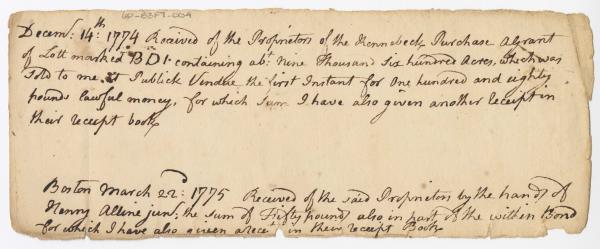 60-83F7-004
Decemr. 14th: 1774 Received of the Proprietors of the Kennebeck Purchase a Grant
of Lott marked BD1. containing abt. Nine Thousand Six hundred Acres, which was
Sold to me at Publick Vendue the first Instant for One hundred and eighty
pounds lawful money, for which Sum I have also given another receipt in
their receipt book
Boston March 22d: 1775 Received of the said Proprietors by the hands of
Henry Alline junr. the sum of Fifty pounds also in part of the within Bond
for which I have also given a rect in their receipt Book